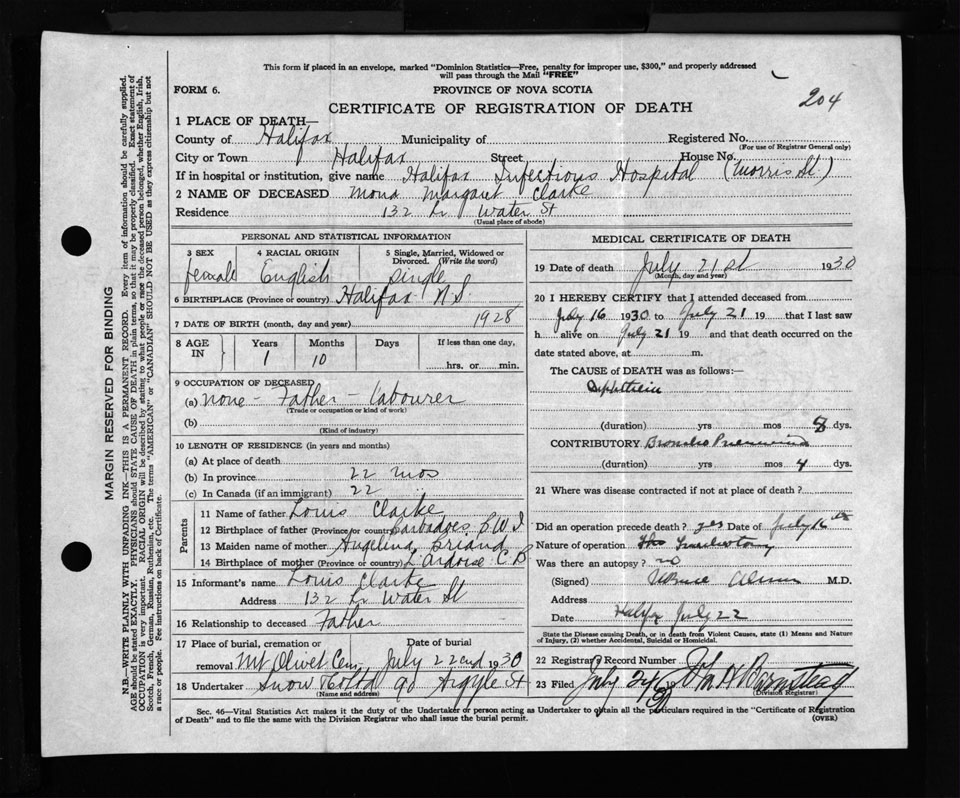 This form if placed in an envelope, marked "Dominion Statistics—Free, penalty for improper use, $300," and properly addressed
will pass through the Mail "FREE"
FORM 6.
PROVINCE OF NOVA SCOTIA
204
CERTIFICATE OF REGISTRATION OF DEATH
1 PLACE OF DEATH—
County of Halifax Municipality of Registered No.
(For use of Registrar General only)
City or Town Halifax Street House No.
If in hospital or institution, give name Halifax Infectious Hospital (Morris St)
2 NAME OF DECEASED Mona Margaret Clarke
Residence 132 Lr Water St
(Usual place of abode)
PERSONAL AND STATISTICAL INFORMATION
3 SEX 4 RACIAL ORIGIN 5 Single, Married, Widowed or
Divorced. (Write the word)
female English Single
6 BIRTHPLACE (Province or country) Halifax N.S.
7 DATE OF BIRTH (month, day and year) 1928
8 AGE IN Years Months Days If less than one day,
1 10 hrs. or min.
9 OCCUPATION OF DECEASED
(a) none - Father - Labourer
(Trade or occupation or kind of work)
(b)
(Kind of industry)
10 LENGTH OF RESIDENCE (in years and months)
(a) At place of death
(b) In province 22 mos
(c) In Canada (if an immigrant) 22 "
Parents
11 Name of father Louis Clarke
12 Birthplace of father (Province or country) Barbadoes B.W.I
13 Maiden name of mother Angelina Briand
14 Birthplace of mother (Province or country) L'Ardoise C.B
15 Informant's name Louis Clarke
Address 132 Lr Water St
16 Relationship to deceased Father
17 Place of burial, cremation or Date of burial
removal Mt Olivet Cem, July 22nd 1930
18 Undertaker Snow & Co Ltd 90 Argyle St
(Name and address)
MEDICAL CERTIFICATE OF DEATH
19 Date of death July 21st 1930
(Month, day and year)
20 I HEREBY CERTIFY that I attended deceased from
July 16 1930 to July 21 19 that I last saw
h alive on July 21 19 and that death occurred on the
date stated above, at m.
The CAUSE of DEATH was as follows:—
Diphtheria
(duration) yrs mos 8 dys.
CONTRIBUTORY Broncho Pneumonia
(duration) yrs mos 4 dys.
21 Where was disease contracted if not at place of death?
Did an operation precede death? yes Date of July 16th
Nature of operation
Was there an autopsy? no
(Signed) M.D.
Address
Date Halifax July 22
State the Disease causing Death, or in death from Violent Causes, state (1) Means and Nature
of Injury, (2) whether Accidental, Suicidal or Homicidal.
22 Registrar's Record Number
23 Filed July 24
(Division Registrar)
Sec. 46—Vital Statistics Act makes it the duty of the Undertaker or person acting as Undertaker to obtain all the particulars required in the "Certificate of Registration
of Death" and to file the same with the Division Registrar who shall issue the burial permit. (OVER)
MARGIN RESERVED FOR BINDING
N.B.—WRITE PLAINLY WITH UNFADING INK—THIS IS A PERMANENT RECORD. Every item of information should be carefully supplied.
AGE should be stated EXACTLY. PHYSICIANS should STATE CAUSE OF DEATH in plain terms, so that it may be properly classified. Exact statement of
OCCUPATION is very important. RACIAL ORIGIN will be described by stating to what people or race the deceased person belonged, whether English, Irish,
Scotch, French, German, Russian, Ruthenian, etc. The terms "AMERICAN" or "CANADIAN" SHOULD NOT BE USED as they express citizenship but not
a race or people. See instructions on back of Certificate.